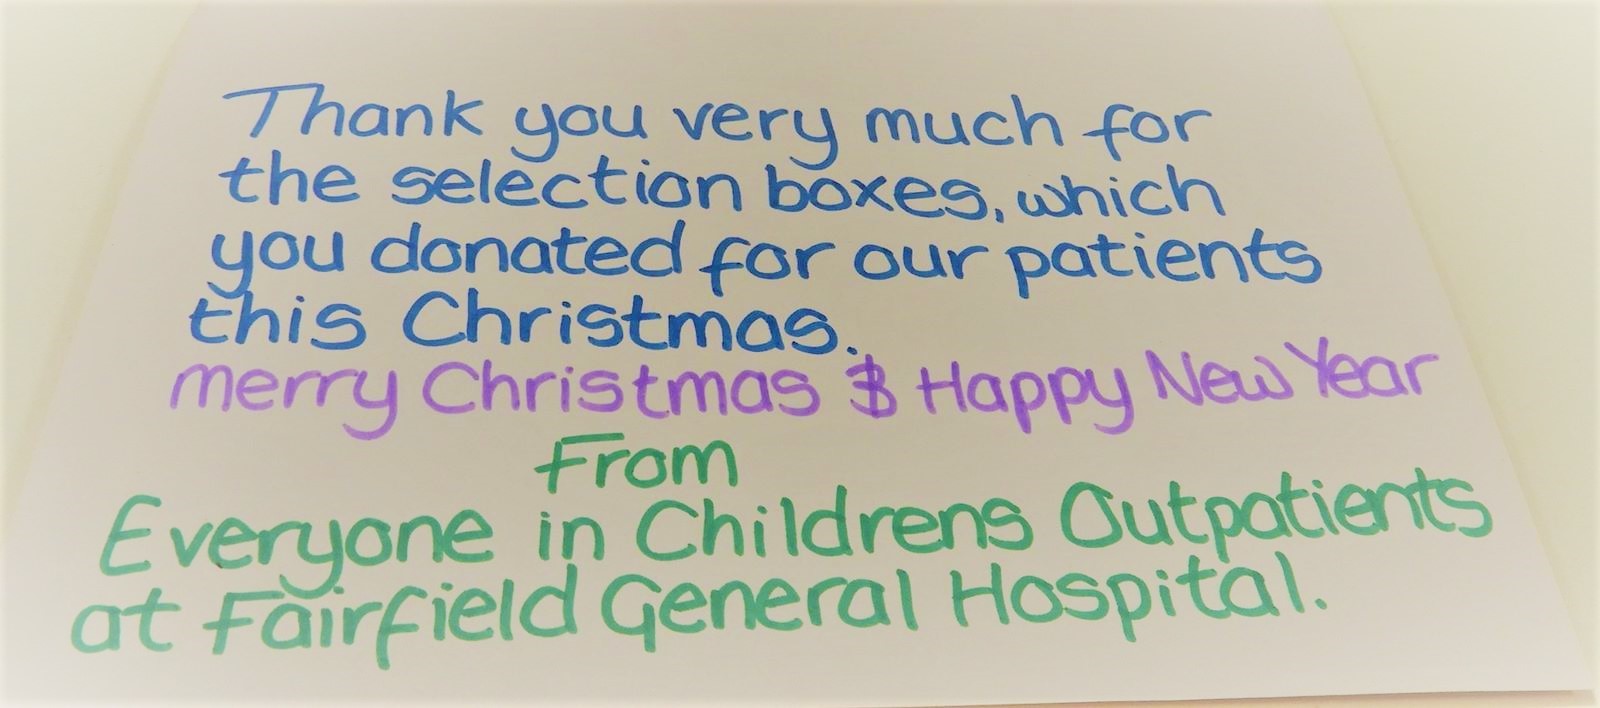 Thank you very much for
the selection boxes, which
you donated for our patients
this Christmas.
merry Christmas & Happy New Year
From
Everyone in Childrens Outpatients
at Fairfield General Hospital.